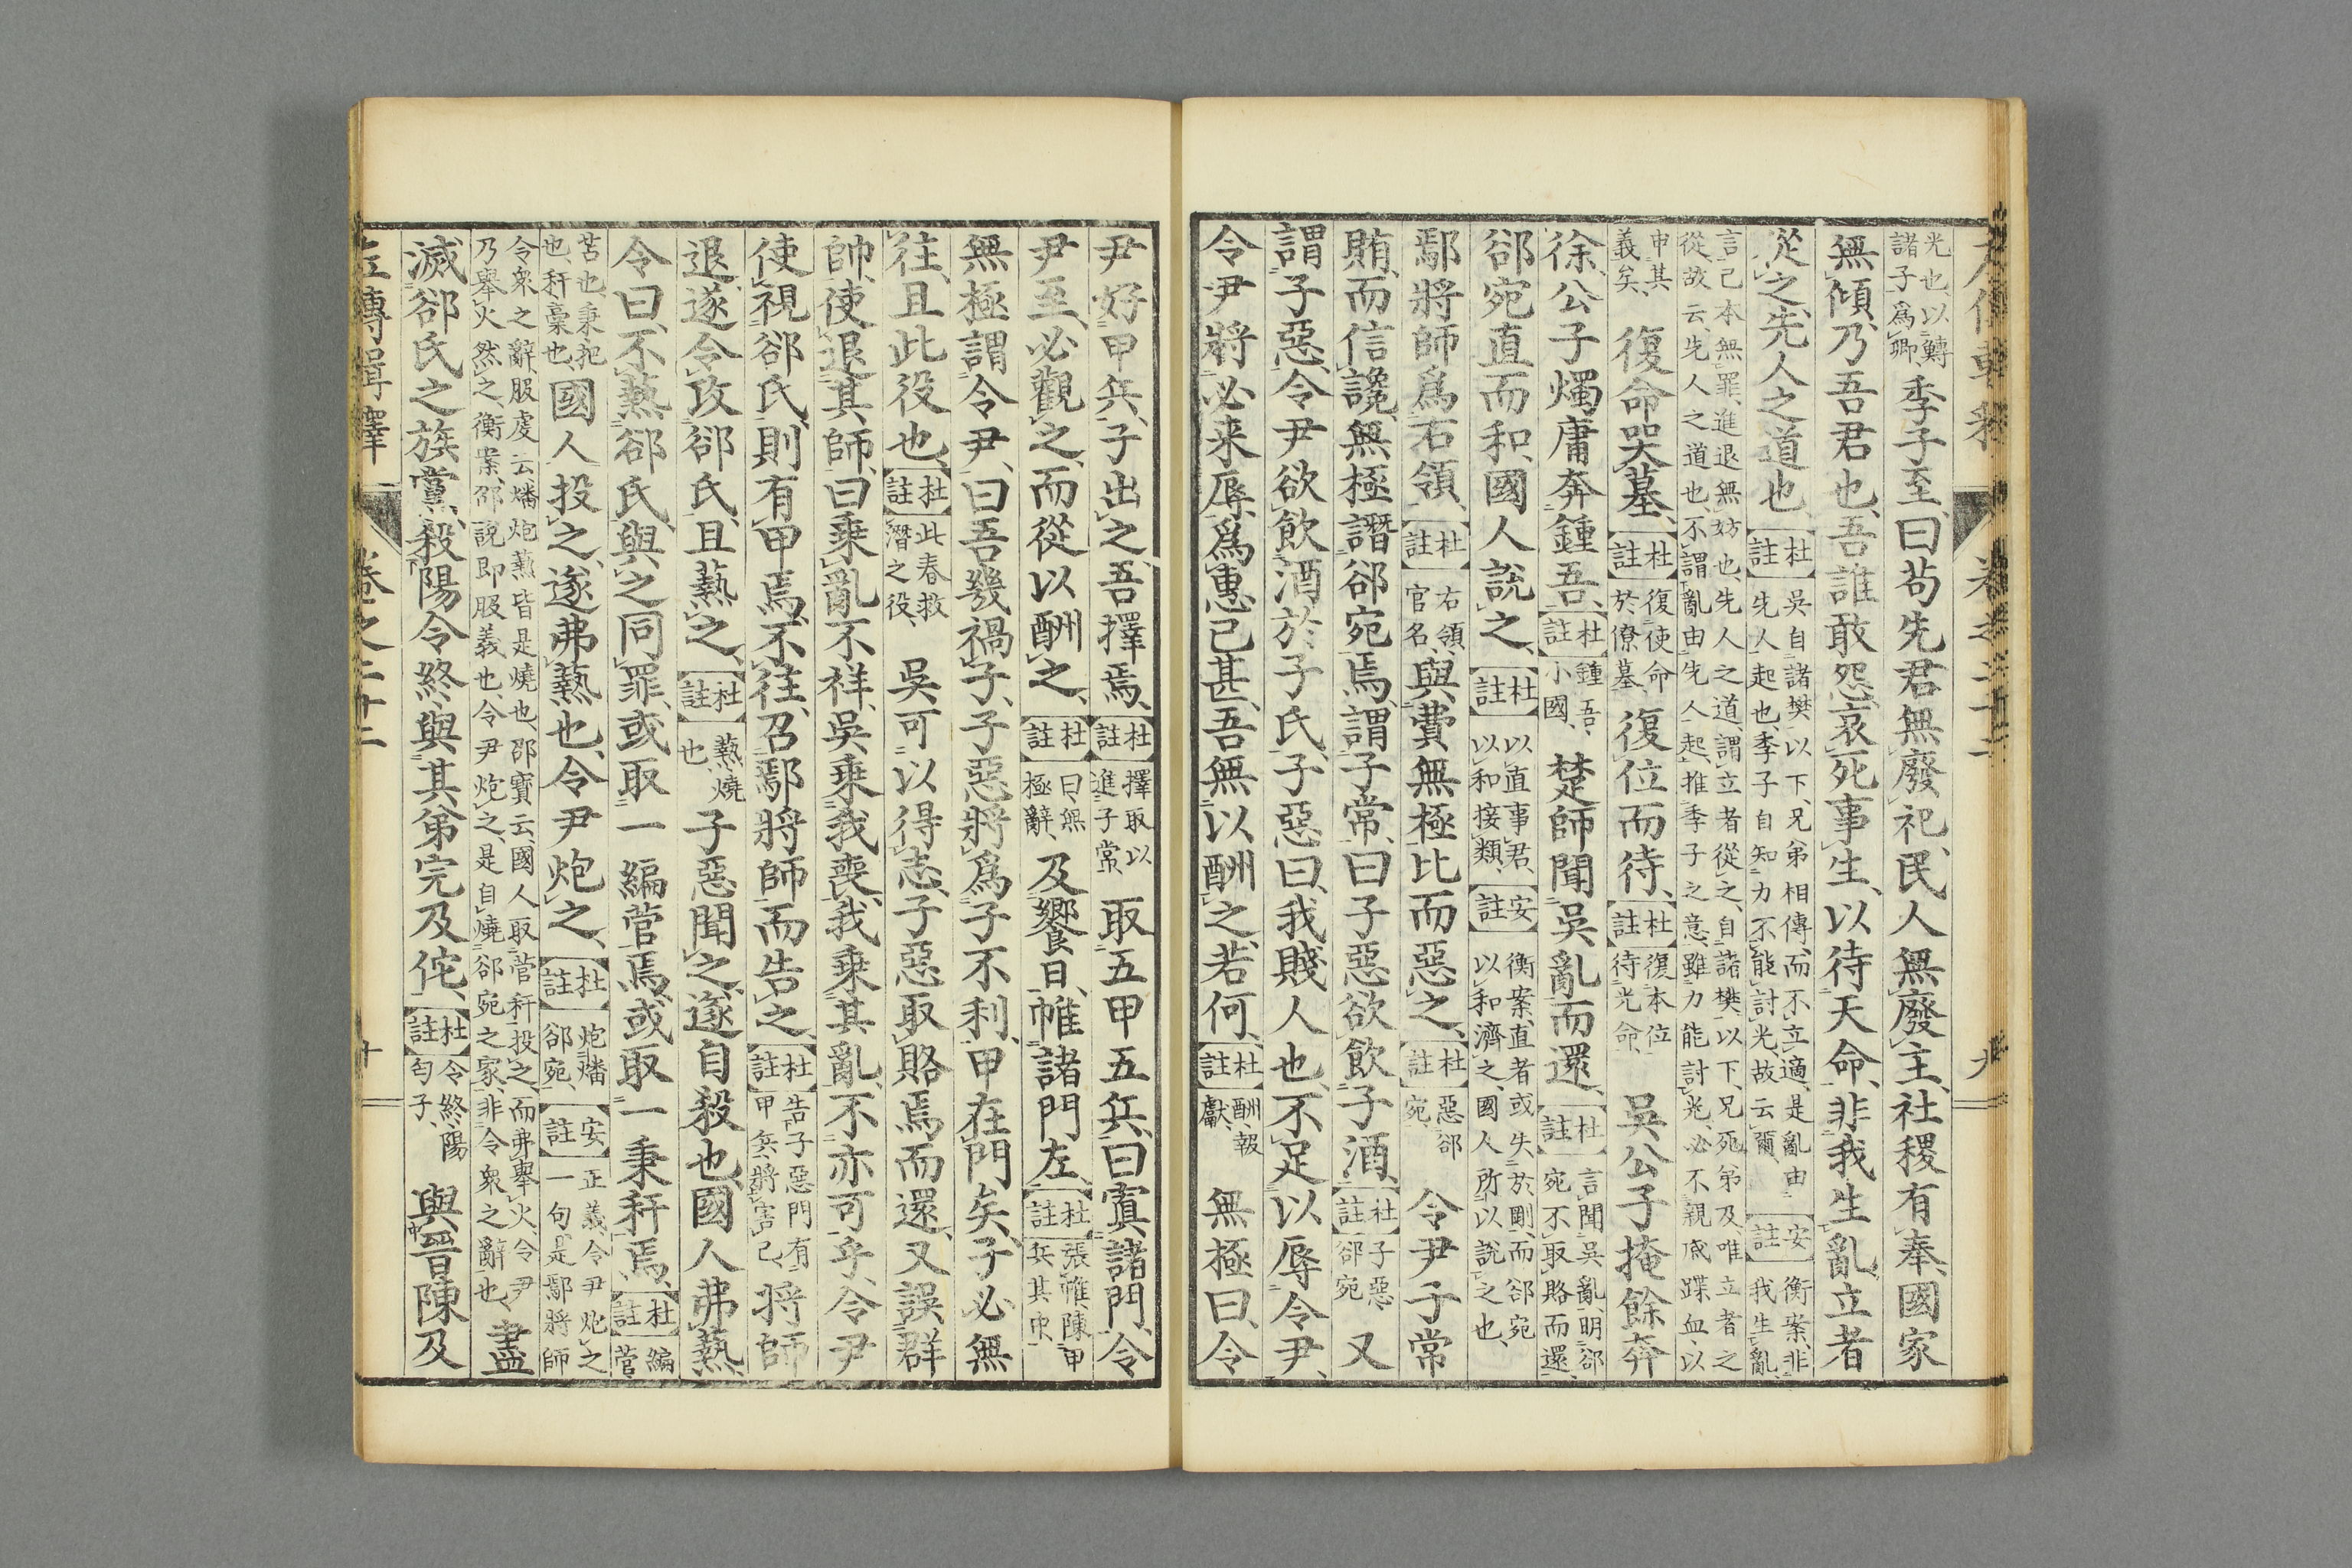 光也、以鱄
諸子爲卿
季子至、曰苟先君無廢祀、民人無廢主、社稷有奉、國家
無傾、乃吾君也、吾誰敢怨、哀死事生、以待天命、非我生亂、立者
從之、先人之道也、
杜註
吳自諸樊以下、兄弟相傳、而不立適、是亂由
先人起也、季子自知力不能討光、故云爾、
安註
衡案、非
我生亂、
言己本無罪、進退無妨也、先人之道、謂立者從之、自諸樊以下、兄死弟及、唯立者之
從、故云、先人之道也、不謂亂由先人起、推季子之意、雖力能討光、必不親戚蹀血以
申其
義矣、
復命哭墓、
杜註
復使命
於僚墓、
復位而待、
杜註
復本位
待光命、
吳公子掩餘奔
徐、公子燭庸奔鍾吾、
杜註
鍾吾、
小國、
楚師聞吳亂而還、
杜註
言聞吳亂、明郤
宛不取賂而還、
郤宛直而和、國人說之、
杜註
以直事君、
以和接類、
安註
衡案、直者或失於剛、而郤宛
以和濟之、國人所以說之也、
鄢將師爲右領、
杜註
右領、
官名、
與費無極比而惡之、
杜註
惡郤
宛、
令尹子常
賄、而信讒、無極譖郤宛焉、謂子常、曰子惡欲飲子酒、
杜註
子惡、
郤宛
又
謂子惡、令尹欲飲酒於子氏、子惡曰、我賤人也、不足以辱令尹、
令尹將必來辱、爲惠已甚、吾無以酬之、若何、
杜註
酬、報
獻、
無極曰、令
尹好甲兵、子出之、吾擇焉、
杜註
擇取以
進子常
取五甲五兵、曰寘諸門、令
尹至、必觀之、而從以酬之、
杜註
曰、無
極辭、
及饗日、帷諸門左、
杜註
張帷、陳甲
兵其中、
無極謂令尹、曰吾幾禍子、子惡將爲子不利、甲在門矣、子必無
往、且此役也、
杜註
此春救
潛之役、
吳可以得志、子惡取賂焉而還、又誤群
帥、使退其師、曰乘亂不祥、吳乘我喪、我乘其亂、不亦可乎、令尹
使視郤氏、則有甲焉、不往、召鄢將師而告之、
杜註
告子惡門有
甲兵、將害己、
將師
退、遂令攻郤氏、且爇之、
杜註
爇、燒
也、
子惡聞之、遂自殺也、國人弗爇
令曰、不爇郤氏、與之同罪、或取一編菅焉、或取一秉秆焉、
杜註
編
菅
苫也、秉把
也、秆稾也、
國人投之、遂弗爇也、令尹炮之、
杜註
炮燔
郤宛、
安註
正義、令尹炮之
一句、是鄢將師
令衆之辭、服虔云、燔炮爇皆是燒也、邵寶云、國人取菅秆投之、而弗舉火、令尹
乃舉火然之、衡案、邵說即服義也、令尹炮之、是自燒郤宛之家、非令衆之辭也、
盡
滅郤氏之族黨、殺陽令終、與其弟完及佗、
杜註
令終、陽
匄子、
與晉陳及
左傳輯釋
卷之二十二
十